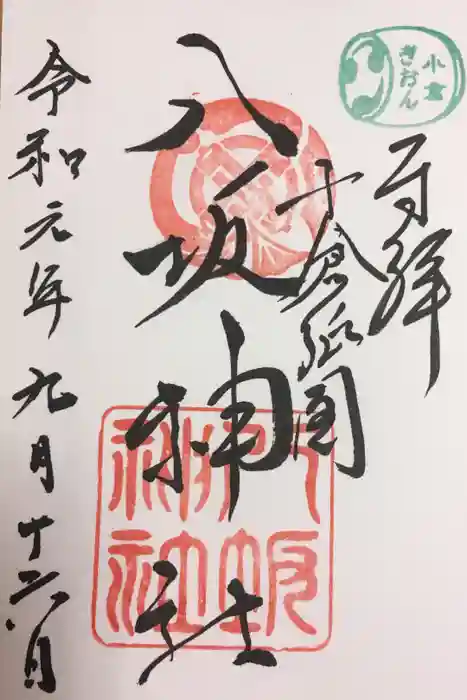 小倉
ぎおん
奉拝
小倉祇園
八坂神社
八坂
神社
令和元年九月十六日